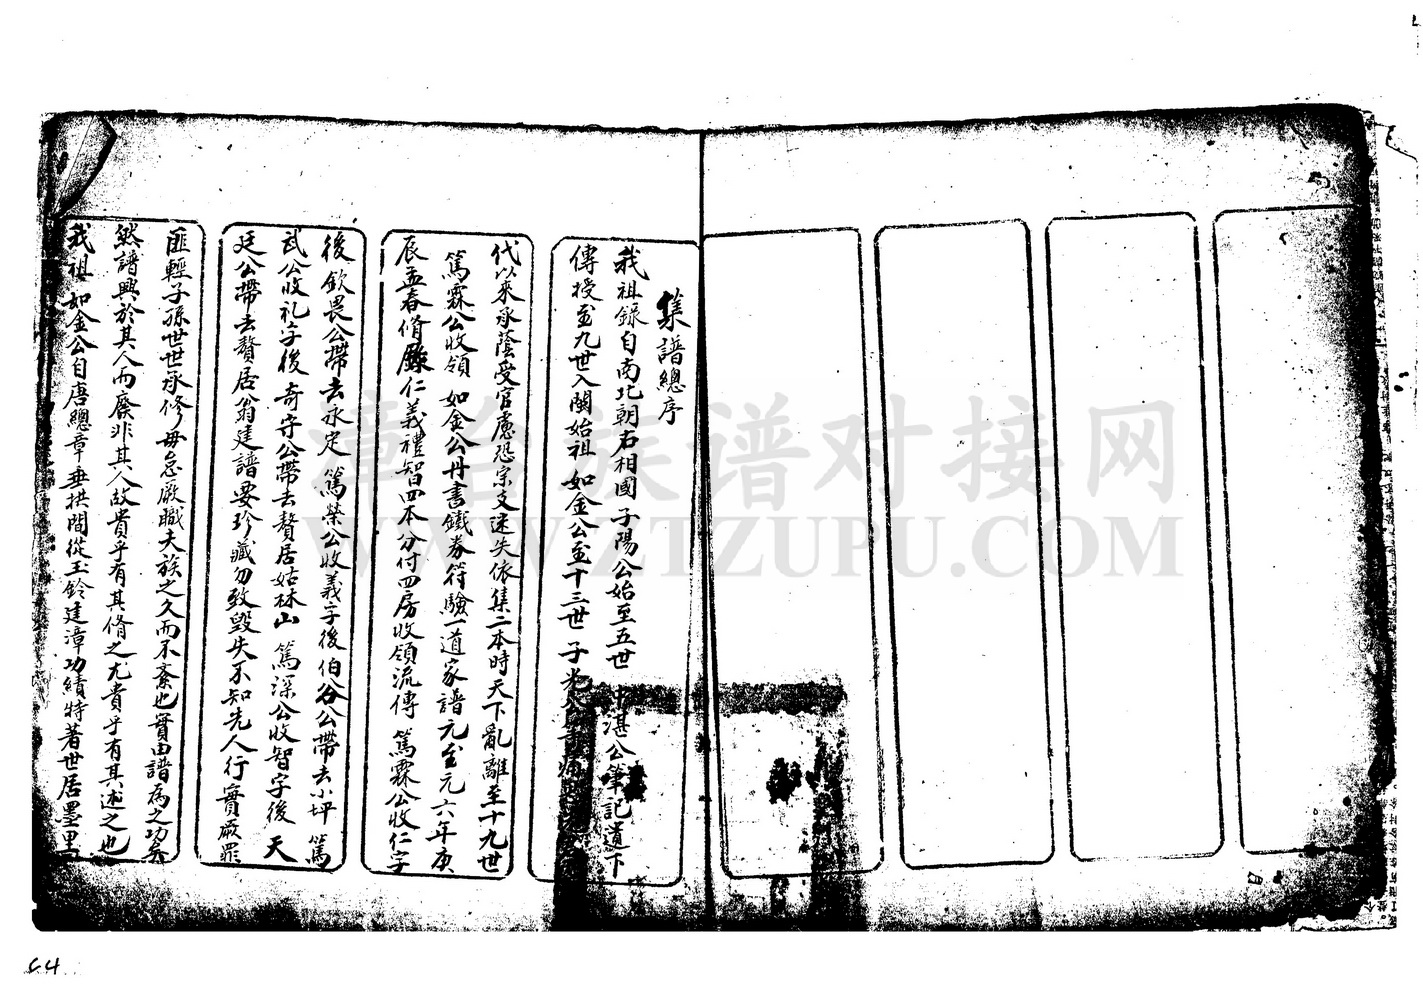 集譜總序
我祖錄自南北朝右相國子陽公始至五世 中湛公筆記遺下
傳授至九世入閩始祖 如金公至十三世 子光
代以來承蔭受官慮恐宗支迷失依集二本時天下亂離至十九世
篤霖公收領 如金公丹書鐵券符驗一道家譜 元至元六年庚
辰孟春脩錄仁義禮智四本分付四房收領流傳 篤霖公收仁字
後欽畏公帶去永定 篤榮公收義字後伯谷公帶去小坪 篤
武公收礼字後奇守公帶去贅居姑林山 篤深公收智字後 天
廷公帶去贅居翁建譜要珍藏勿致毀失不知先人行實厥罪
匪輕子孫世世承修毋怠厥職夫族之久而不紊也實由譜為之功矣
然譜興於其人而廢非其人故貴乎有其脩之尤貴乎有其述之也
我祖 如金公自唐總章垂拱間從玉鈴建漳功績特著世居墨里
津台族谱对接网
WWW.ZTZUPU.COM
64